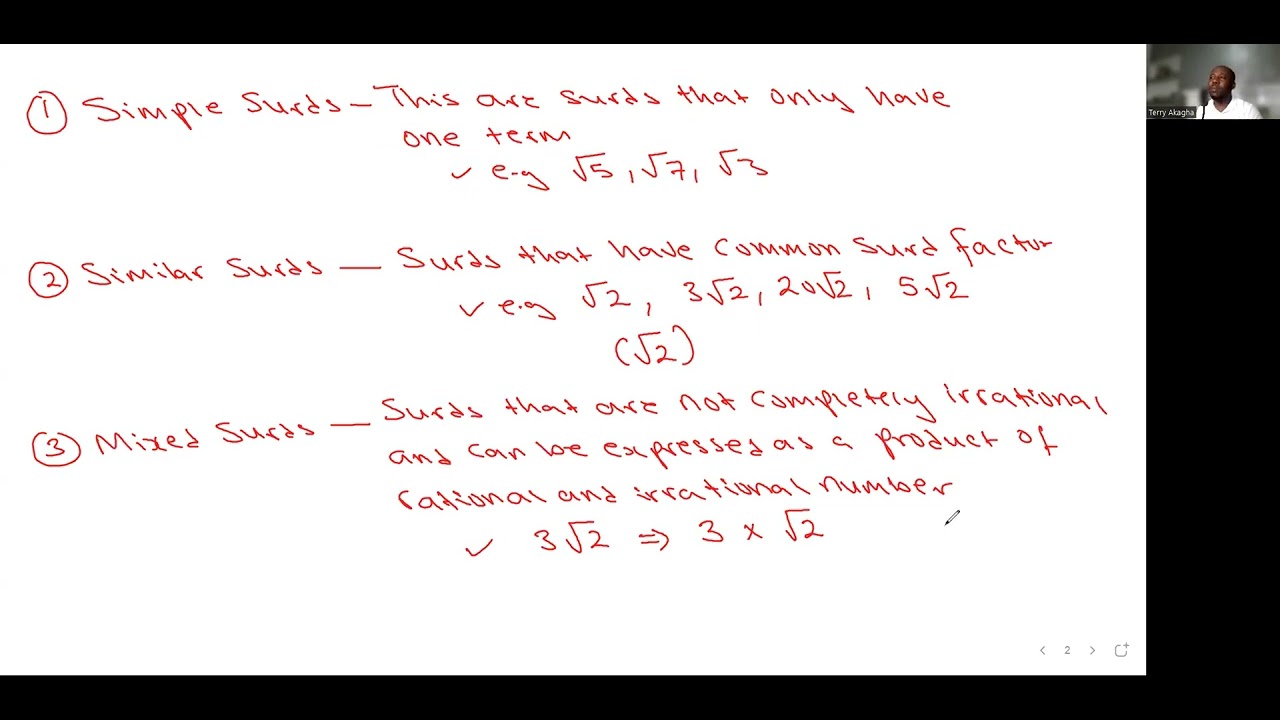 ① Simple Surds – This are surds that only have
one term
✓ e.g √5, √7, √3
② Similar Surds — Surds that have common surd factor
✓ e.g √2, 3√2, 20√2, 5√2
(√2)
③ Mixed Surds — Surds that are not completely irrational
and can be expressed as a product of
rational and irrational number
✓ 3√2 ⇒ 3 x √2
Terry Akagha
< 2 >